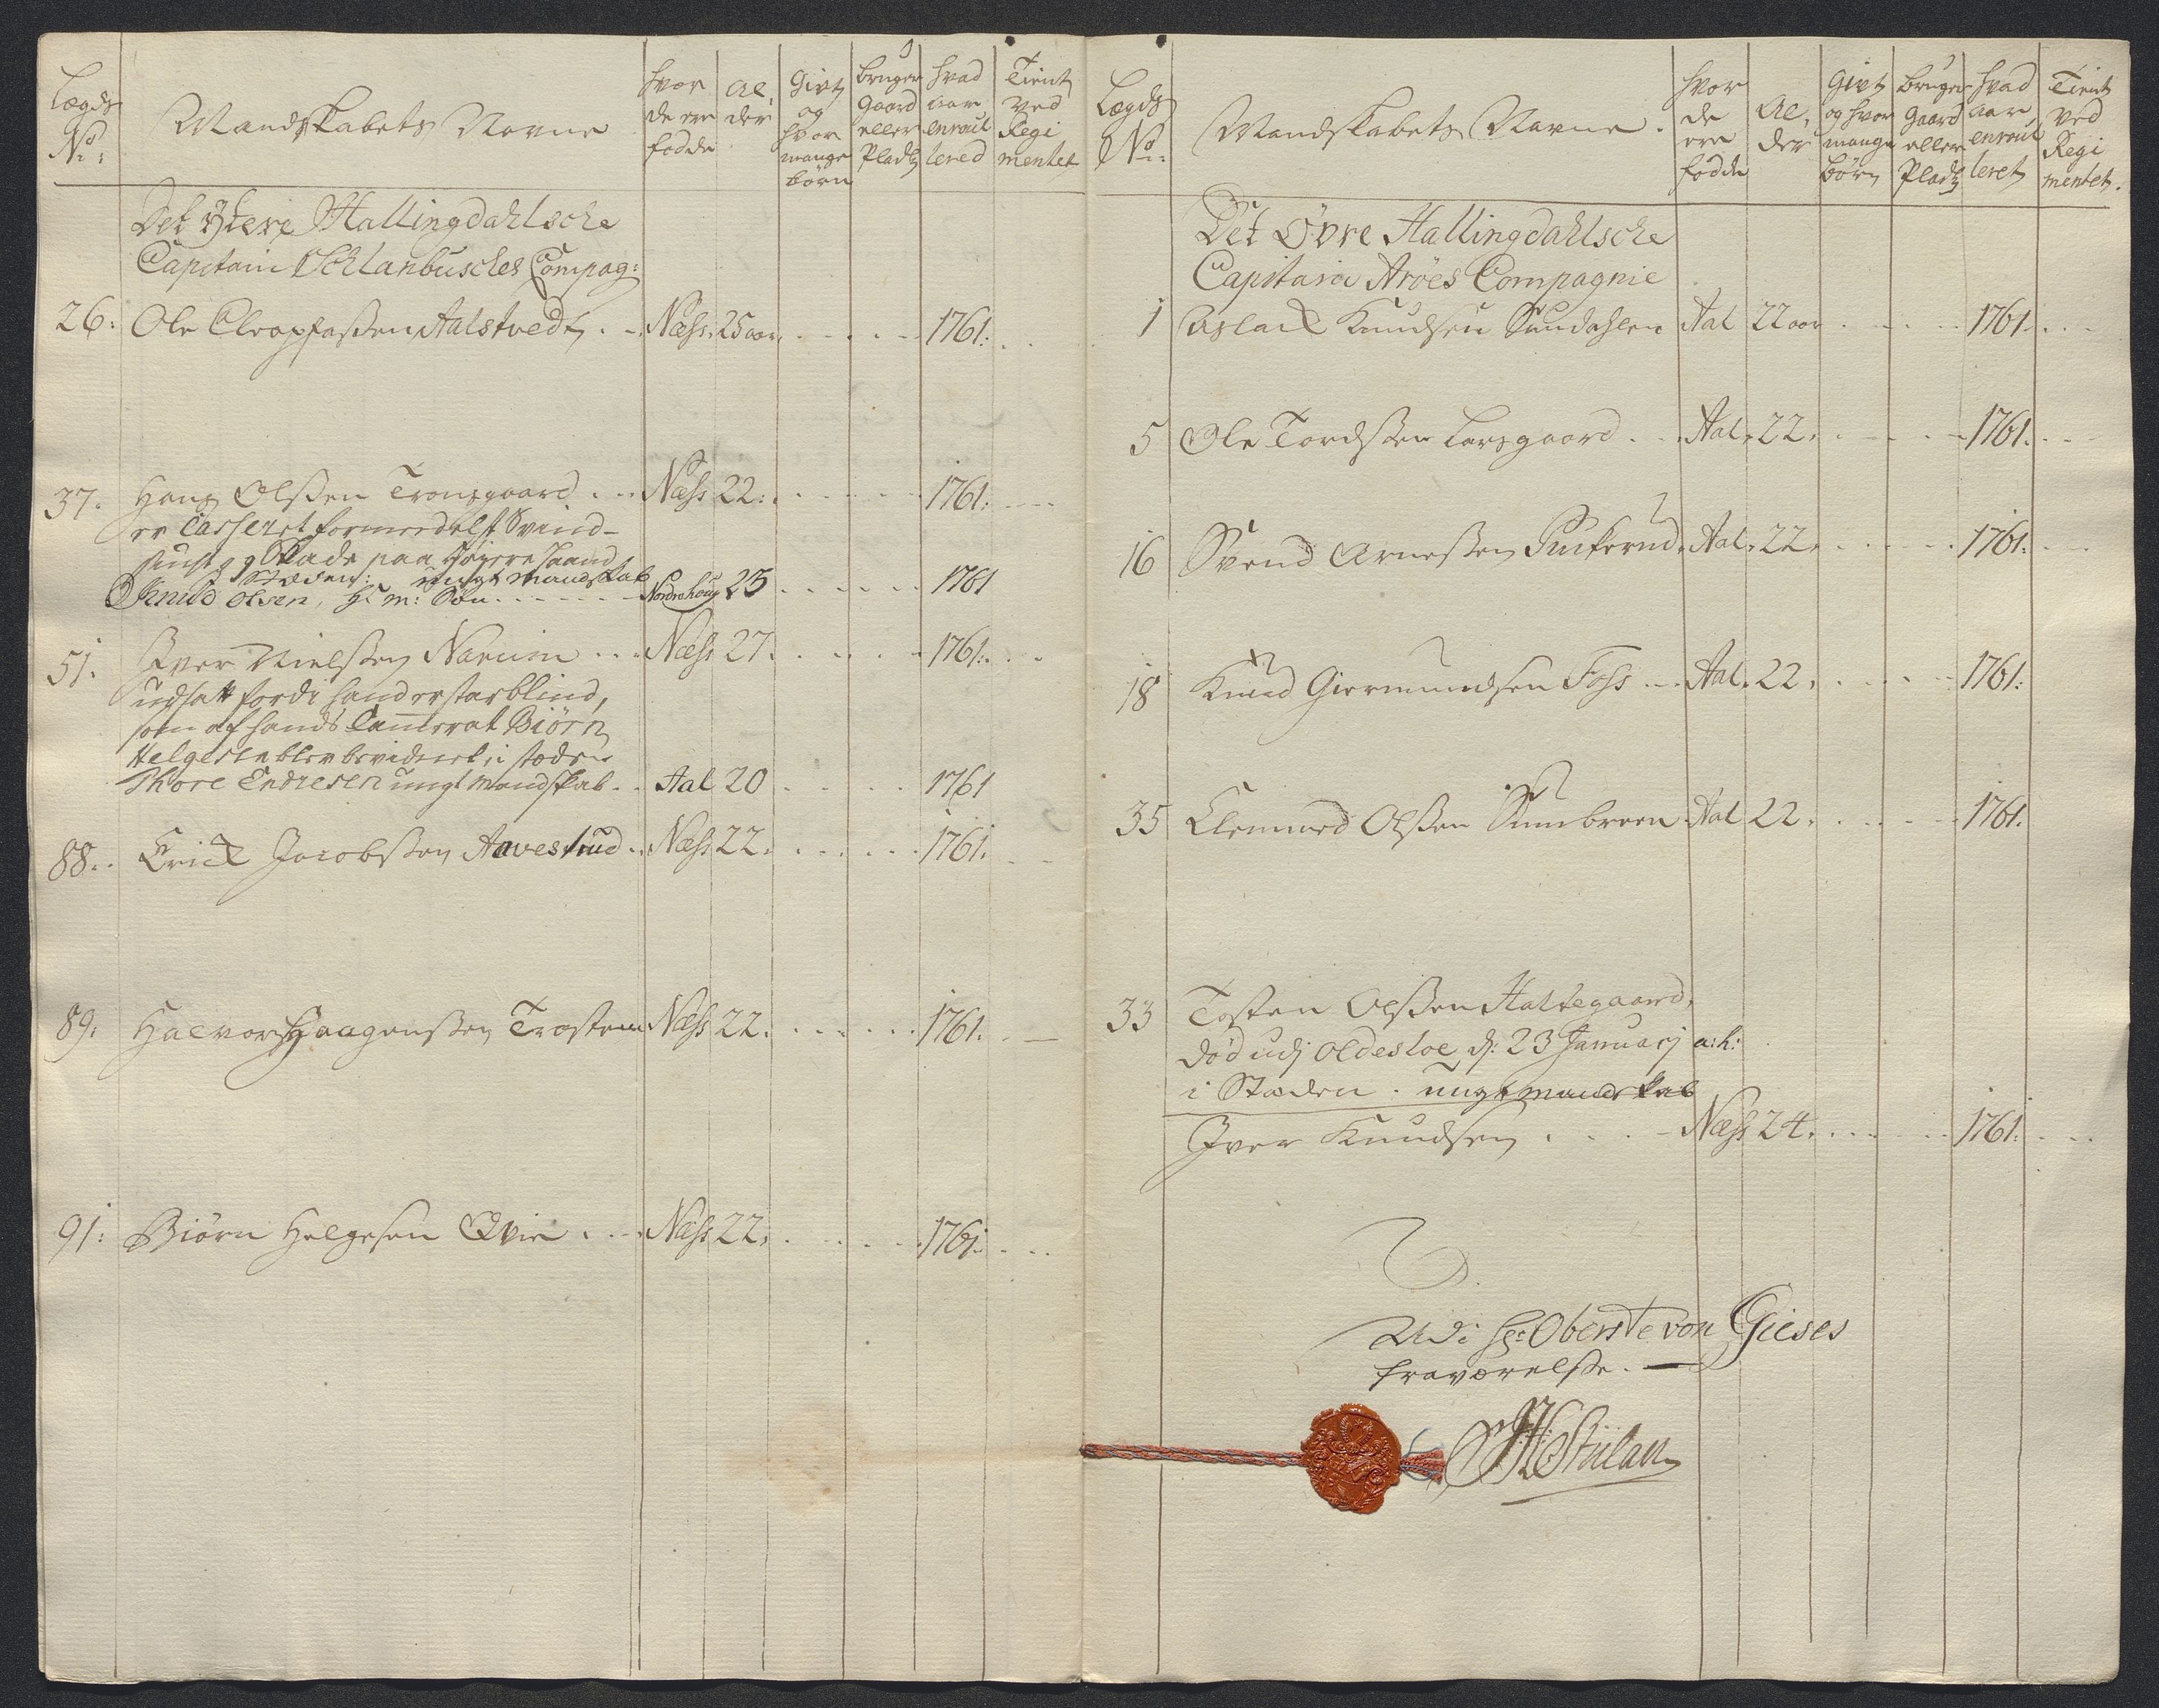 Lægds No:
Mandskabets Navne
hvor de ere fødde
Al, der
Givt og hvor mange børn
bruger Gaard eller Pladtz
hvad aar enroul lered
Tient ved Regi mentet
Det Ytere Hallingdahlsche
Capitain Schlanbusches Compag:
26: Ole Aalstvedt . - Næss. 25 aar. 1761:
37. Hans Olssen Tronsgaard . . - Næss 22: 1761:
er Casseret formedelst Svind-
siuge og Skade paa høyere Haand
i Steden: ungt Mandskab
Knud Olsen, H: m: Søn - - - Nordrehoug 25 1761
51. Iver Nielssen Narum . . . Næss 27. 1761:
udsatt fordi hand er starblind,
som af hands Camerat Biørn
Helgesen blev bevidnet, i steden
Thore Endresen ungt Mandskab. . Aal 20 1761
88. Erick Jacobssen Aavestrud . Næss 22. 1761.
89. Halvor Haagenssen Trostem Næss 22. 1761.
91: Biørn Helgesen Qvie . . . Næss 22. 1761.
Lægds No:
Mandskabets Navne.
hvor de ere fødde
Al, der
Givt og hvor mange børn
bruger Gaard eller Pladtz
hvad aar enroul leret
Tient ved Regi mentet.
Det Øvre Hallingdahlsche
Capitain Arøes Compagnie
1 Aslack Knudsen Sundahlen Aal 22 aar 1761
5 Ole Tordssen Larsgaard . . . Aal. 22. 1761.
16 Svend Arnessen Aal. 22. 1761.
18 Knud Giermundsen Foss . . . Aal. 22. 1761:
35 Clemmed Olssen Sunbreen Aal 22. 1761.
33 Tosten Olssen Haltegaard,
død udj Oldesloe d: 23 Januarj a: h:
i Steden. ungt mandskab
Iver Knudsen . . . - Næss 24. 1761.
Udi Hr: Oberste von Gieses
fraværelsse.